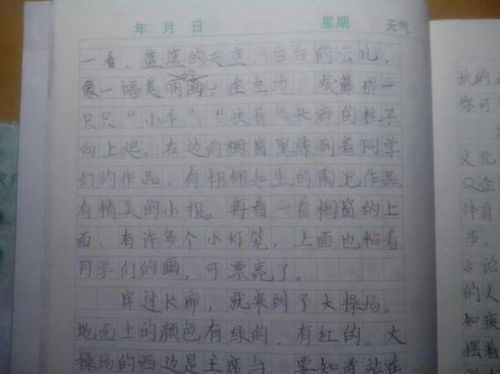 年 月 日 星期 天气
一看，蓝蓝的天空、白白的云儿，
像一幅美丽画，走左边，紫藤那一
只只“小手”，“扶着”长廊的柱子
向上爬，右边的橱窗里陈列着同学
们的作品，有栩栩如生的陶泥作品
有精美的小报。再看一看橱窗的上
面，有许多个小灯笼，上面也粘着
同学们的画，可漂亮了。
穿过长廊，就来到了大操场。
地面上的颜色有绿的，有红的。大
操场的西边是主席台，要知道站在